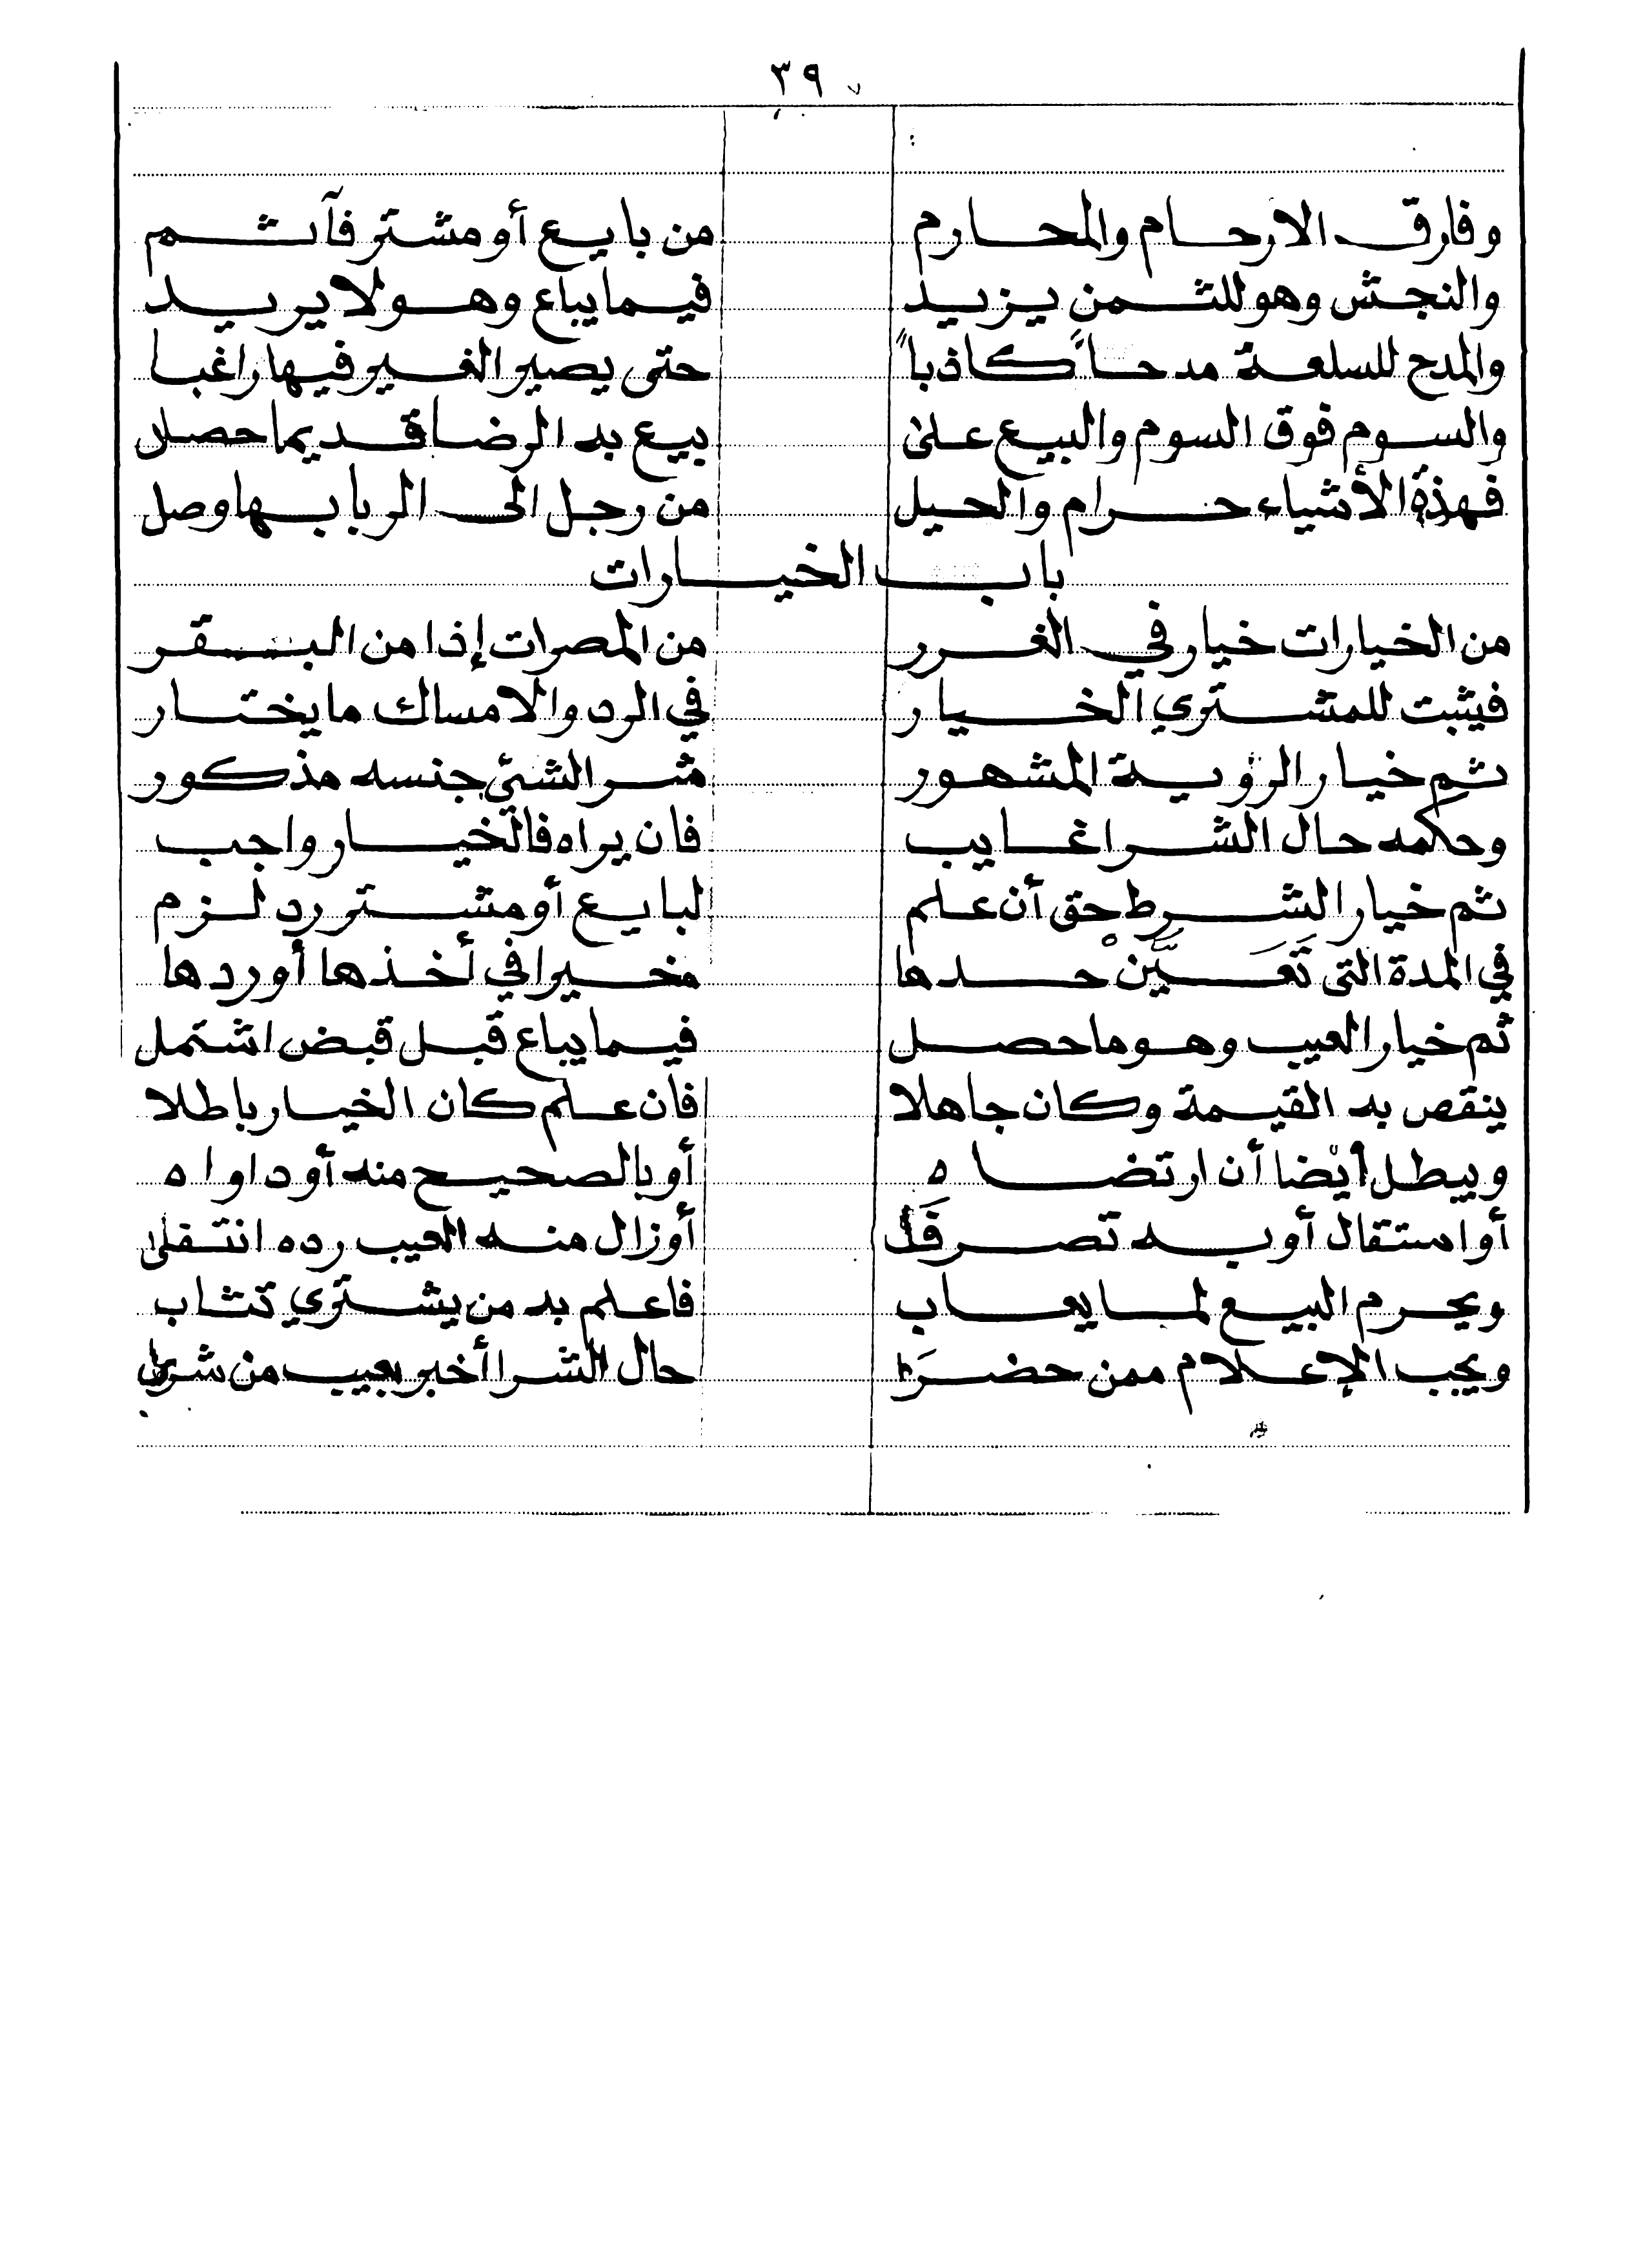 ٣٩
وفارق الارحام والمحارم من بايع أو مشتر فآثم
والنجش وهو للثمن يزيد فيما يباع وهو لا يريد
والمدح للسلعة مدحاً كاذباً حتى يصير الغير فيها راغبا
والسوم فوق السوم والبيع على بيع به الرضا قديما حصل
فهذة الأشياء حرام والحيل من رجل الى الربا بها وصل
باب الخيارات
من الخيارات خيار في الغرر من المصرات إذا من البقر
فيثبت للمشتري الخيار في الرد والامساك ما يختار
ثم خيار الرؤية المشهور شرا لشئ جنسه مذكور
وحكمه حال الشرا غايب فان يراه فالخيار واجب
ثم خيار الشرط حق أن علم لبايع أو مشتر رد لزم
في المدة التى تَعَيَّنْ حدها مخيرا في أخذها أو ردها
ثم خيار العيب وهو ما حصل فيما يباع قبل قبض اشتمل
ينقص به القيمة وكان جاهلا فان علم كان الخيار باطلا
ويبطل أيضا أن ارتضاه أو بالصحيح منه أو داواه
أو استقال أو به تصرفَا أو زال منه العيب رده انتفى
ويحرم البيع لما يعاب فاعلم به من يشتري تثاب
ويجب الإعلام ممن حضرَا حال الشرا أخبر بعيب من شرى